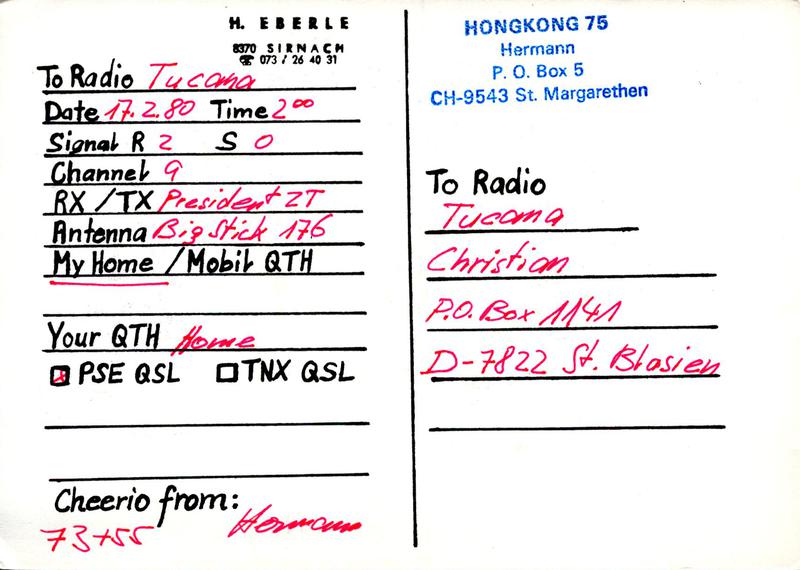 H. EBERLE
8370 SIRNACH
☎ 073 / 26 40 31
To Radio Tucama
Date 17.2.80 Time 2⁰⁰
Signal R 2 S 0
Channel 9
RX / TX President ZT
Antenna Big Stick 176
My Home / Mobil QTH
Your QTH Home
☒ PSE QSL ☐ TNX QSL
Cheerio from:
73+55 Hermann
HONGKONG 75
Hermann
P. O. Box 5
CH-9543 St. Margarethen
To Radio
Tucama
Christian
P.O. Box 1141
D-7822 St. Blasien